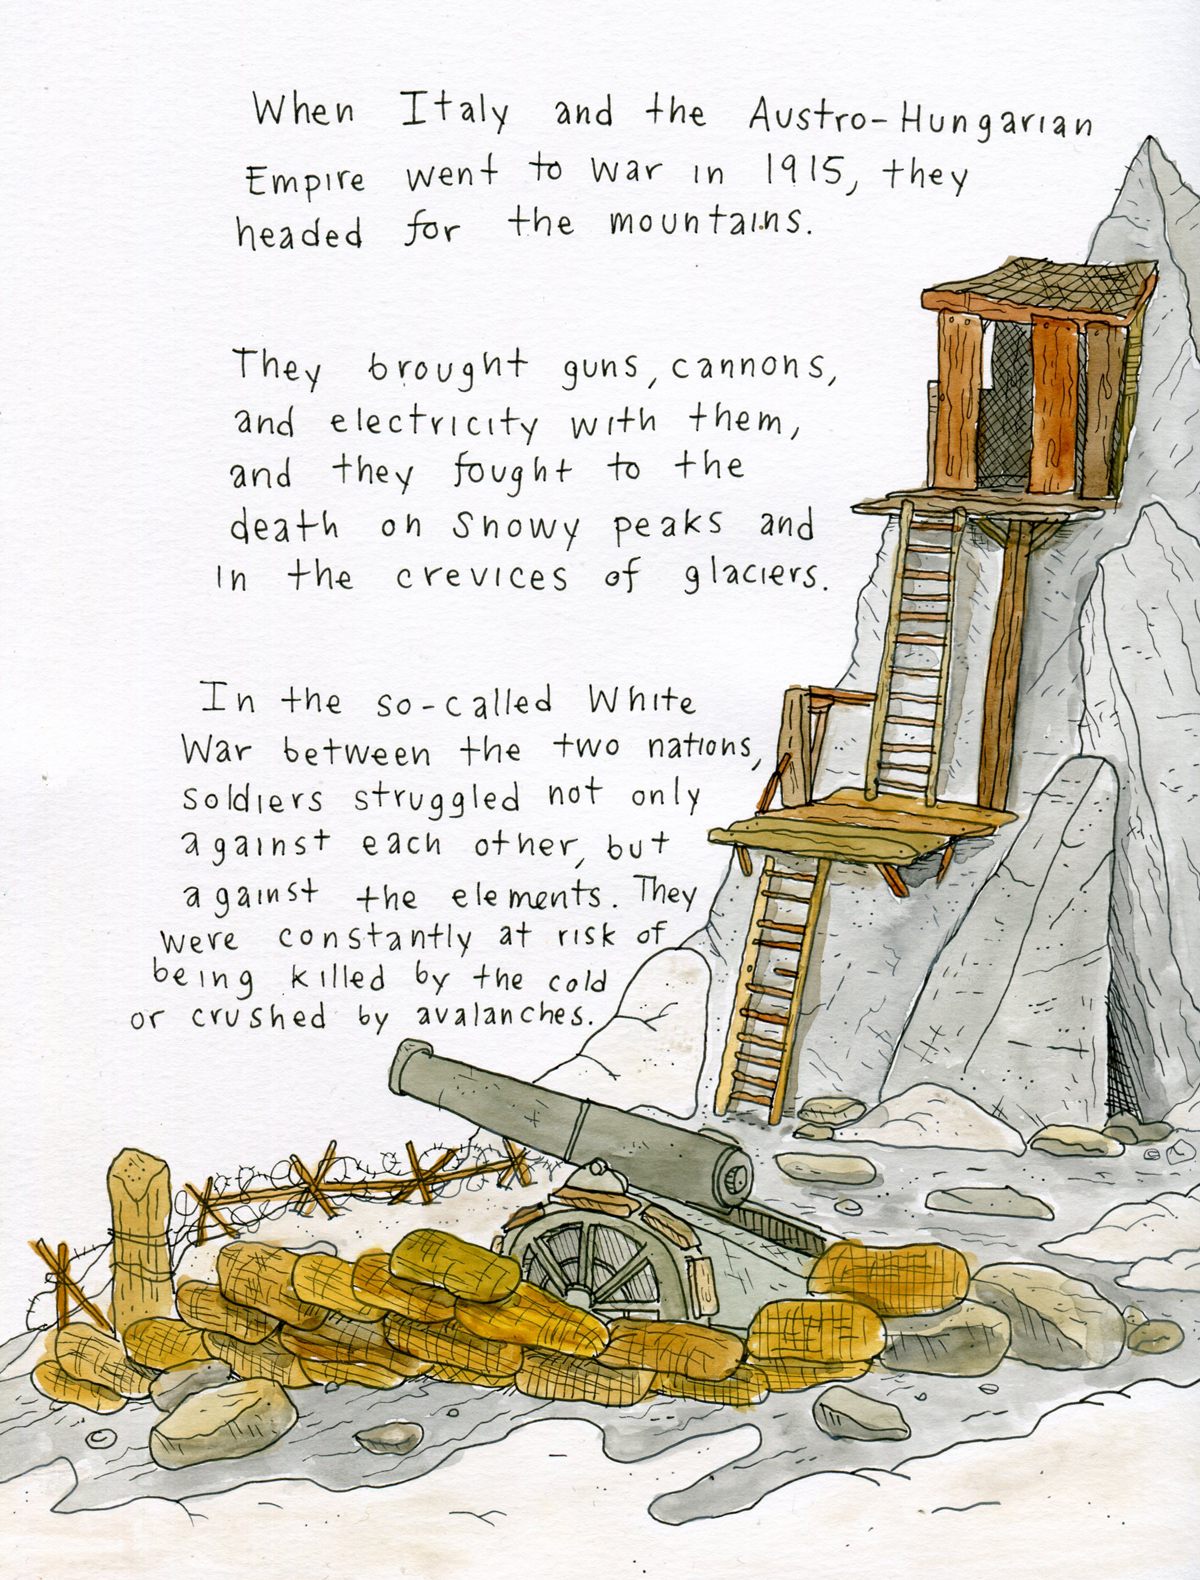 When Italy and the Austro-Hungarian
Empire went to war in 1915, they
headed for the mountains.
They brought guns, cannons,
and electricity with them,
and they fought to the
death on snowy peaks and
in the crevices of glaciers.
In the so-called White
War between the two nations,
soldiers struggled not only
against each other, but
against the elements. They
were constantly at risk of
being killed by the cold
or crushed by avalanches.